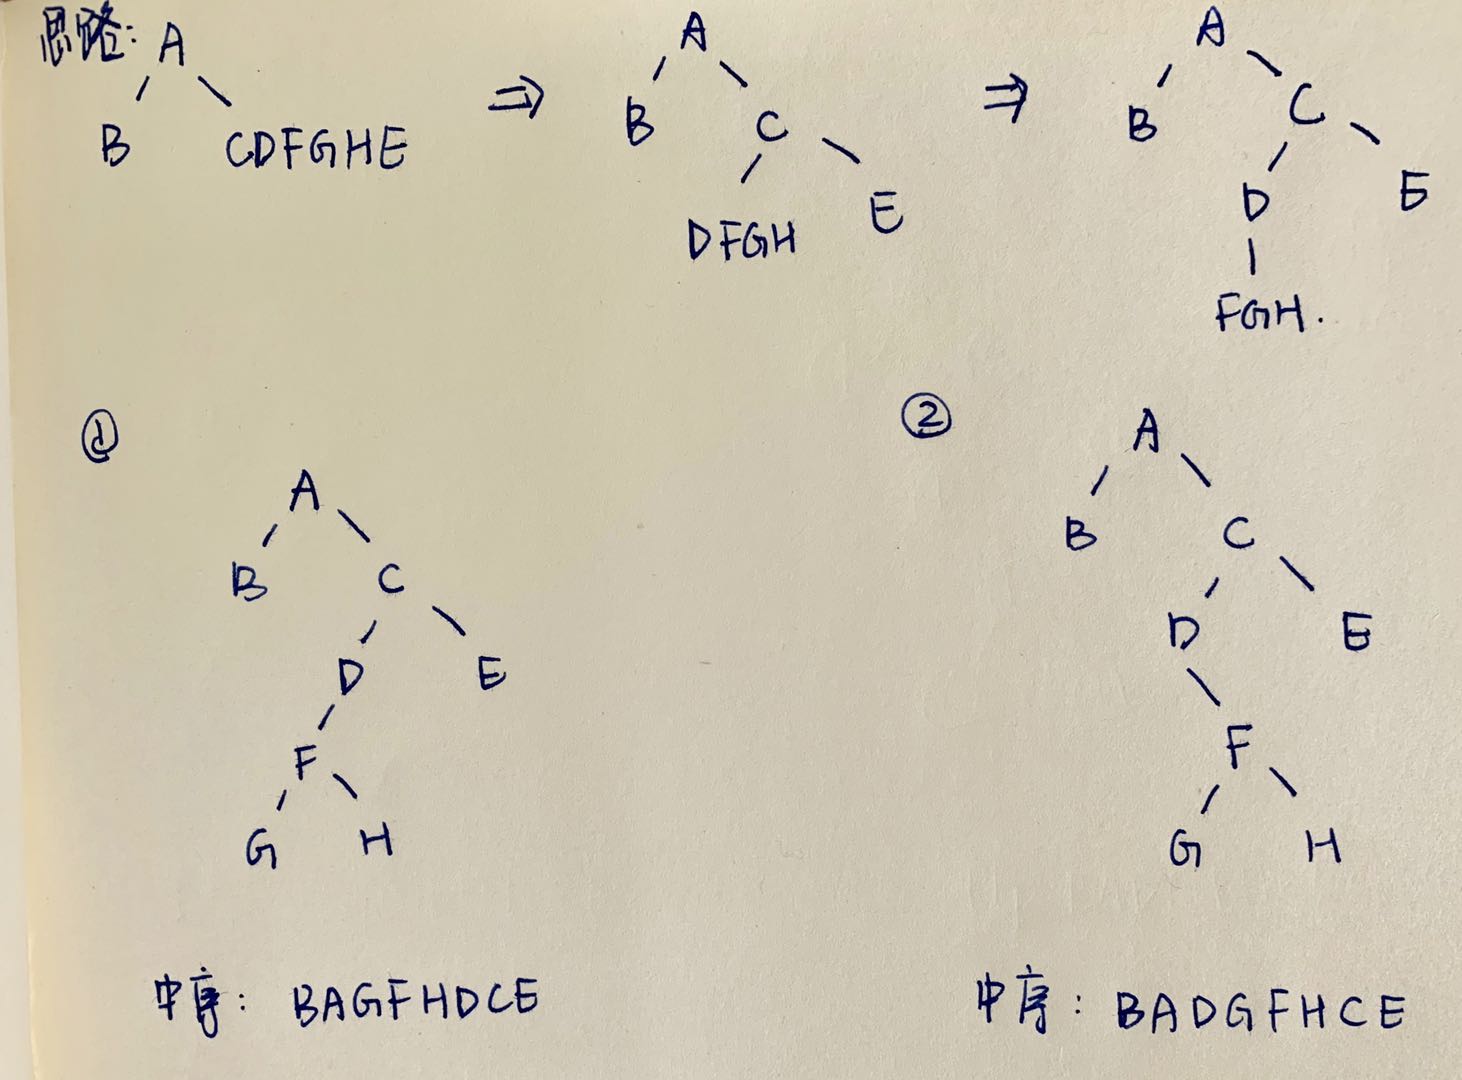 思路:
A
B CDFGHE
⇒
A
B C
DFGH E
⇒
A
B C
D E
FGH.
①
A
B C
D E
F
G H
中序: BAGFHDCE
②
A
B C
D E
F
G H
中序: BADGFHCE